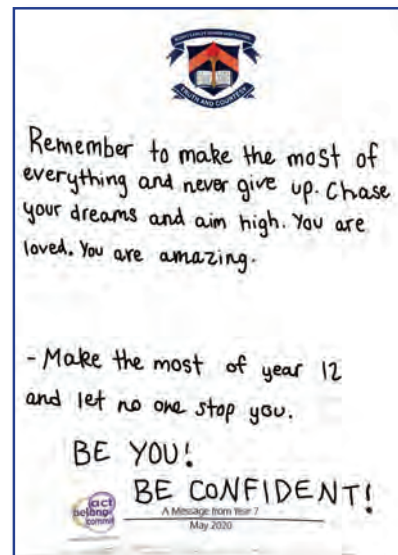 TRUTH AND COURTESY
Remember to make the most of
everything and never give up. Chase
your dreams and aim high. You are
loved. You are amazing.
- Make the most of year 12
and let no one stop you.
BE YOU!
BE CONFIDENT!
act
belong
commit
A Message from Year 7
May 2020